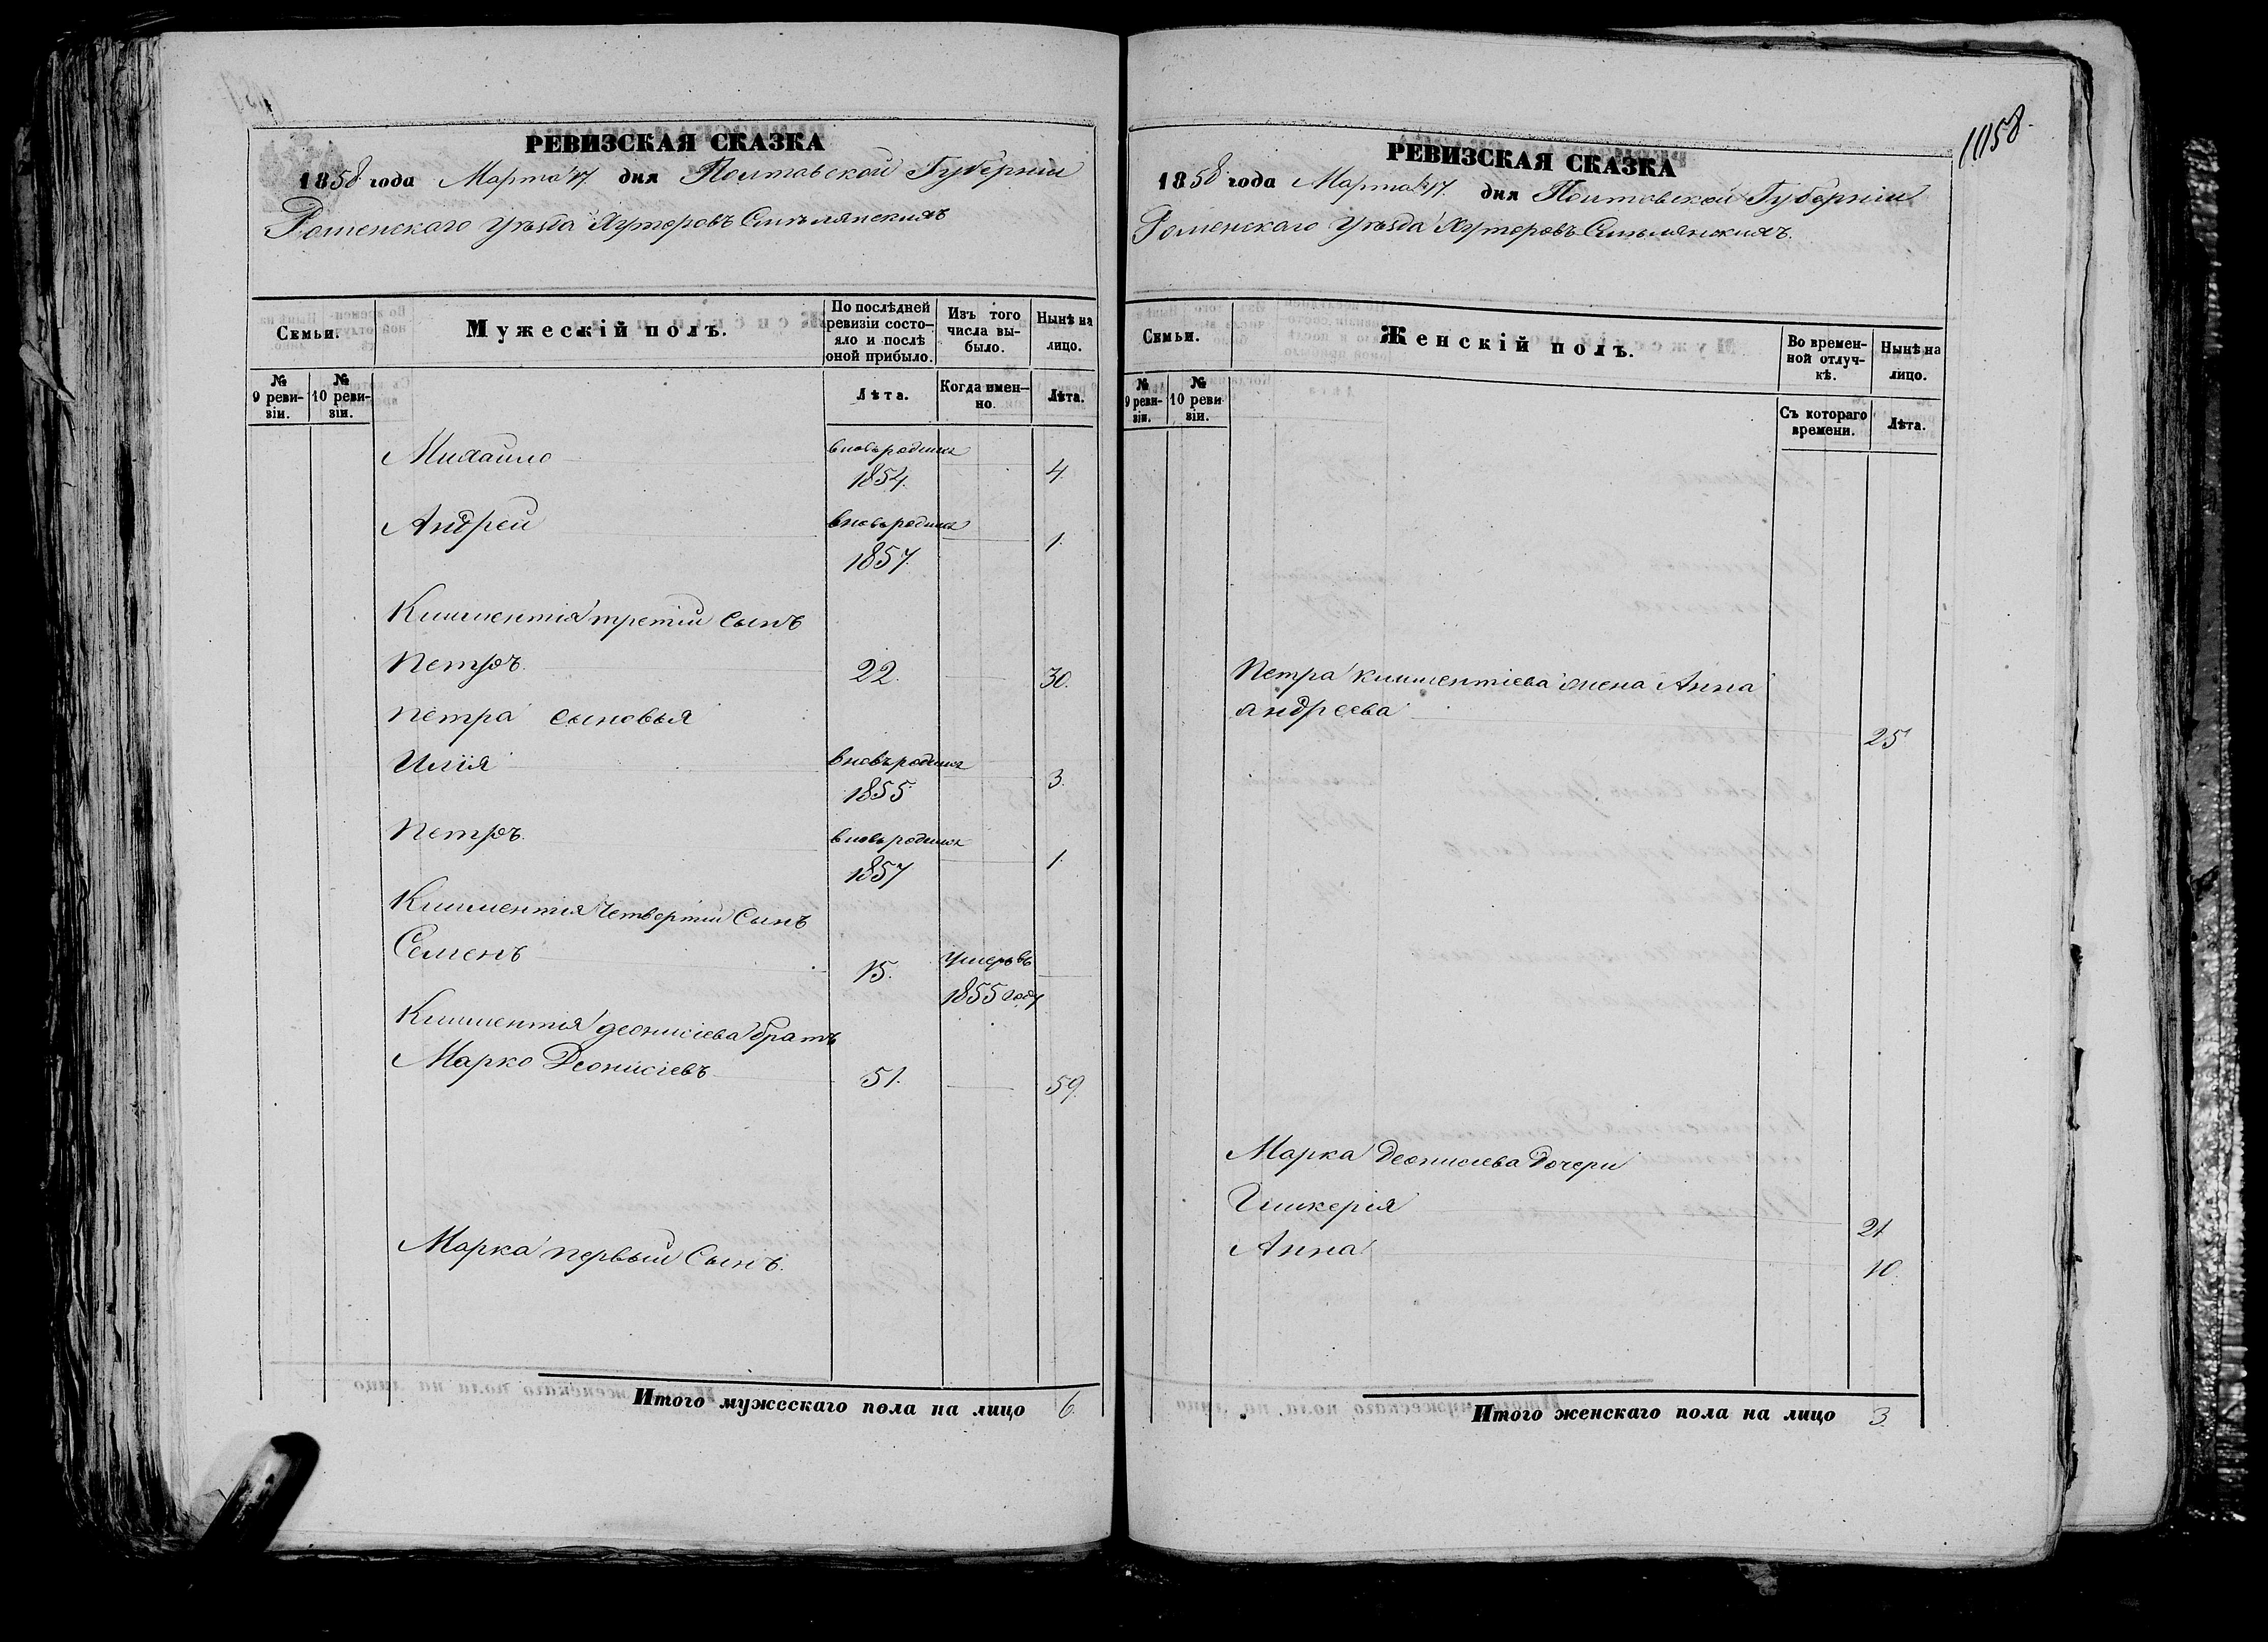 РЕВИЗСКАЯ СКАЗКА
1858 года Марта 17. дня Полтавской Губерніи
Роменскаго Уѣзда Хуторовъ
Семьи.
Мужескій полъ.
По послѣдней ревизіи состояло и послѣ оной прибыло.
Изъ того числа выбыло.
Нынѣ на лицо.
№ 9 ревизіи.
№ 10 ревизіи.
Лѣта.
Когда именно.
Лѣта.
Михайло вновьродился 1854. 4.
Андрей вновьродился 1857. 1.
Климентія третій Сынъ
Петръ. 22. 30.
Петра сыновья
Илія вновьродился 1855. 3.
Петръ. вновьродился 1857 1.
Климентія Четвертый Сынъ
Семенъ 15. умеръ въ 1855 году
Климентія Деонисіева братъ
Марко Деонисіевъ 51. 59.
Марка первый Сынъ.
Итого мужескаго пола на лицо 6.
1158.
РЕВИЗСКАЯ СКАЗКА
1858 года Марта 17. дня Полтавской Губерніи
Роменскаго Уѣзда Хуторовъ
Семьи.
Женскій полъ.
Во временной отлучкѣ.
Нынѣ на лицо.
№ 9 ревизіи.
№ 10 ревизіи.
Съ котораго времени.
Лѣта.
Петра Климентіева жена Анна
Андреева 25
Марка Деонисіева Дочери
Гликерія 21
Анна 10.
Итого женскаго пола на лицо 3.